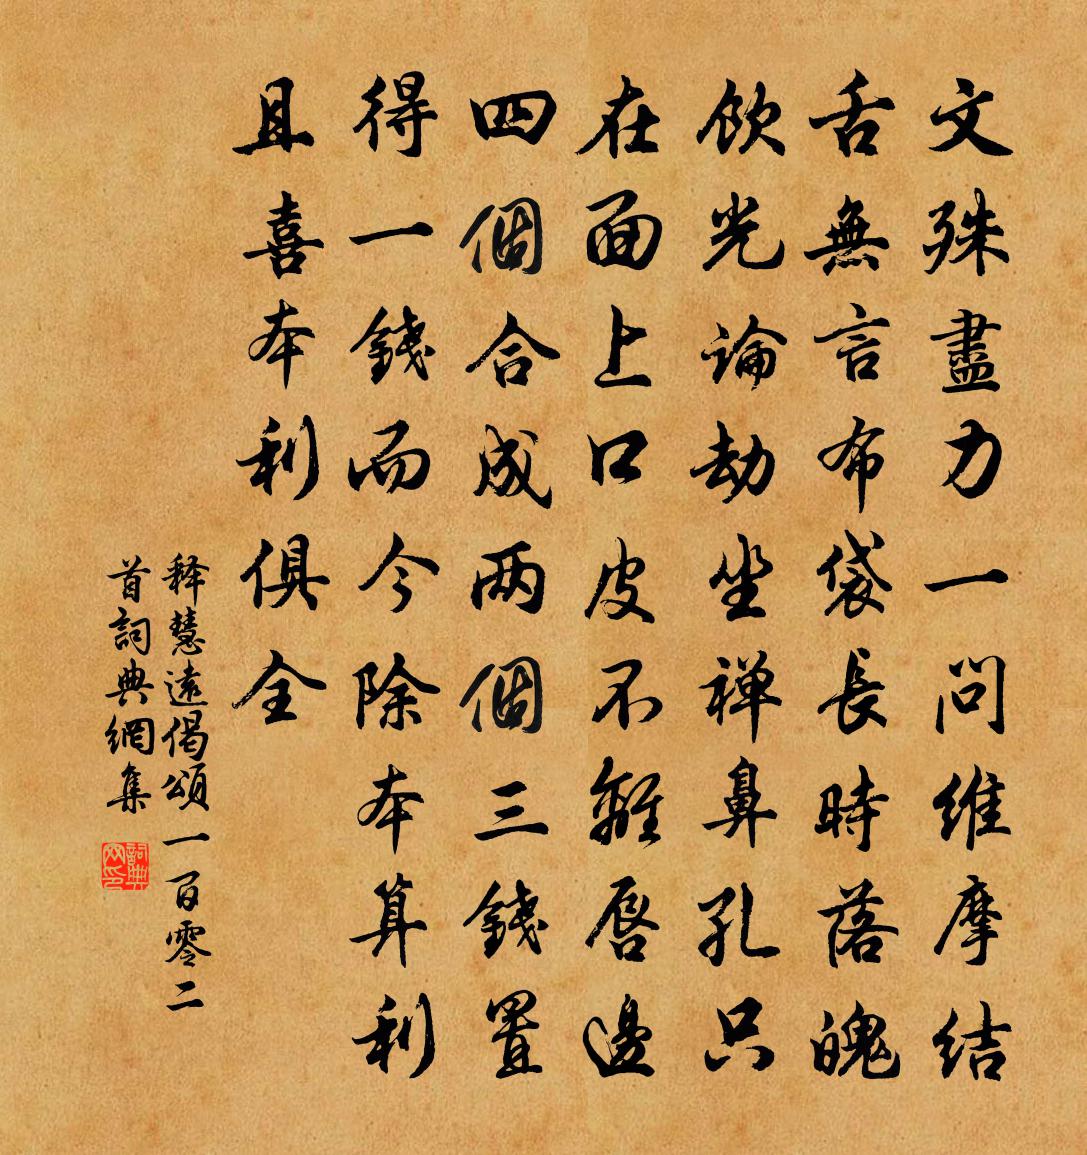 文殊盡力一問維摩結
舌無言布袋長時落魄
飲光論劫坐禅鼻孔只
在面上口皮不離唇邊
四個合成两個三錢置
得一錢而今除本算利
且喜本利俱全
释慧遠偈頌一百零二
首詞典網集
詞典网印